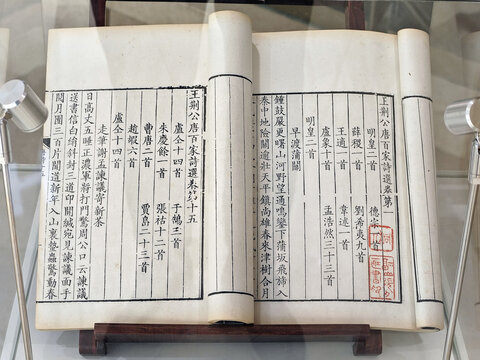 王荊公唐百家詩選卷第一
明皇二首　德宗一首
薛稷一首　劉希夷九首
王適一首　韋述一首
盧象十首　孟浩然三十三首
明皇二首
早渡蒲關
鐘鼓嚴更曙山河野望通鳴鑾下蒲坂飛旆入
秦中地險關逾壯天平鎮尚雄春來津樹合月
王荊公唐百家詩選卷第十五
盧仝十四首　于鵠三首
朱慶餘一首　張祜十二首
曹唐二首　賈島二十三首
趙嘏六首
盧仝十四首
走筆謝孟諫議寄新茶
日高丈五睡正濃軍將打門驚周公口云諫議
送書信白絹斜封三道印開緘宛見諫議面手
閱月團三百片聞道新年入山裏蟄蟲驚動春